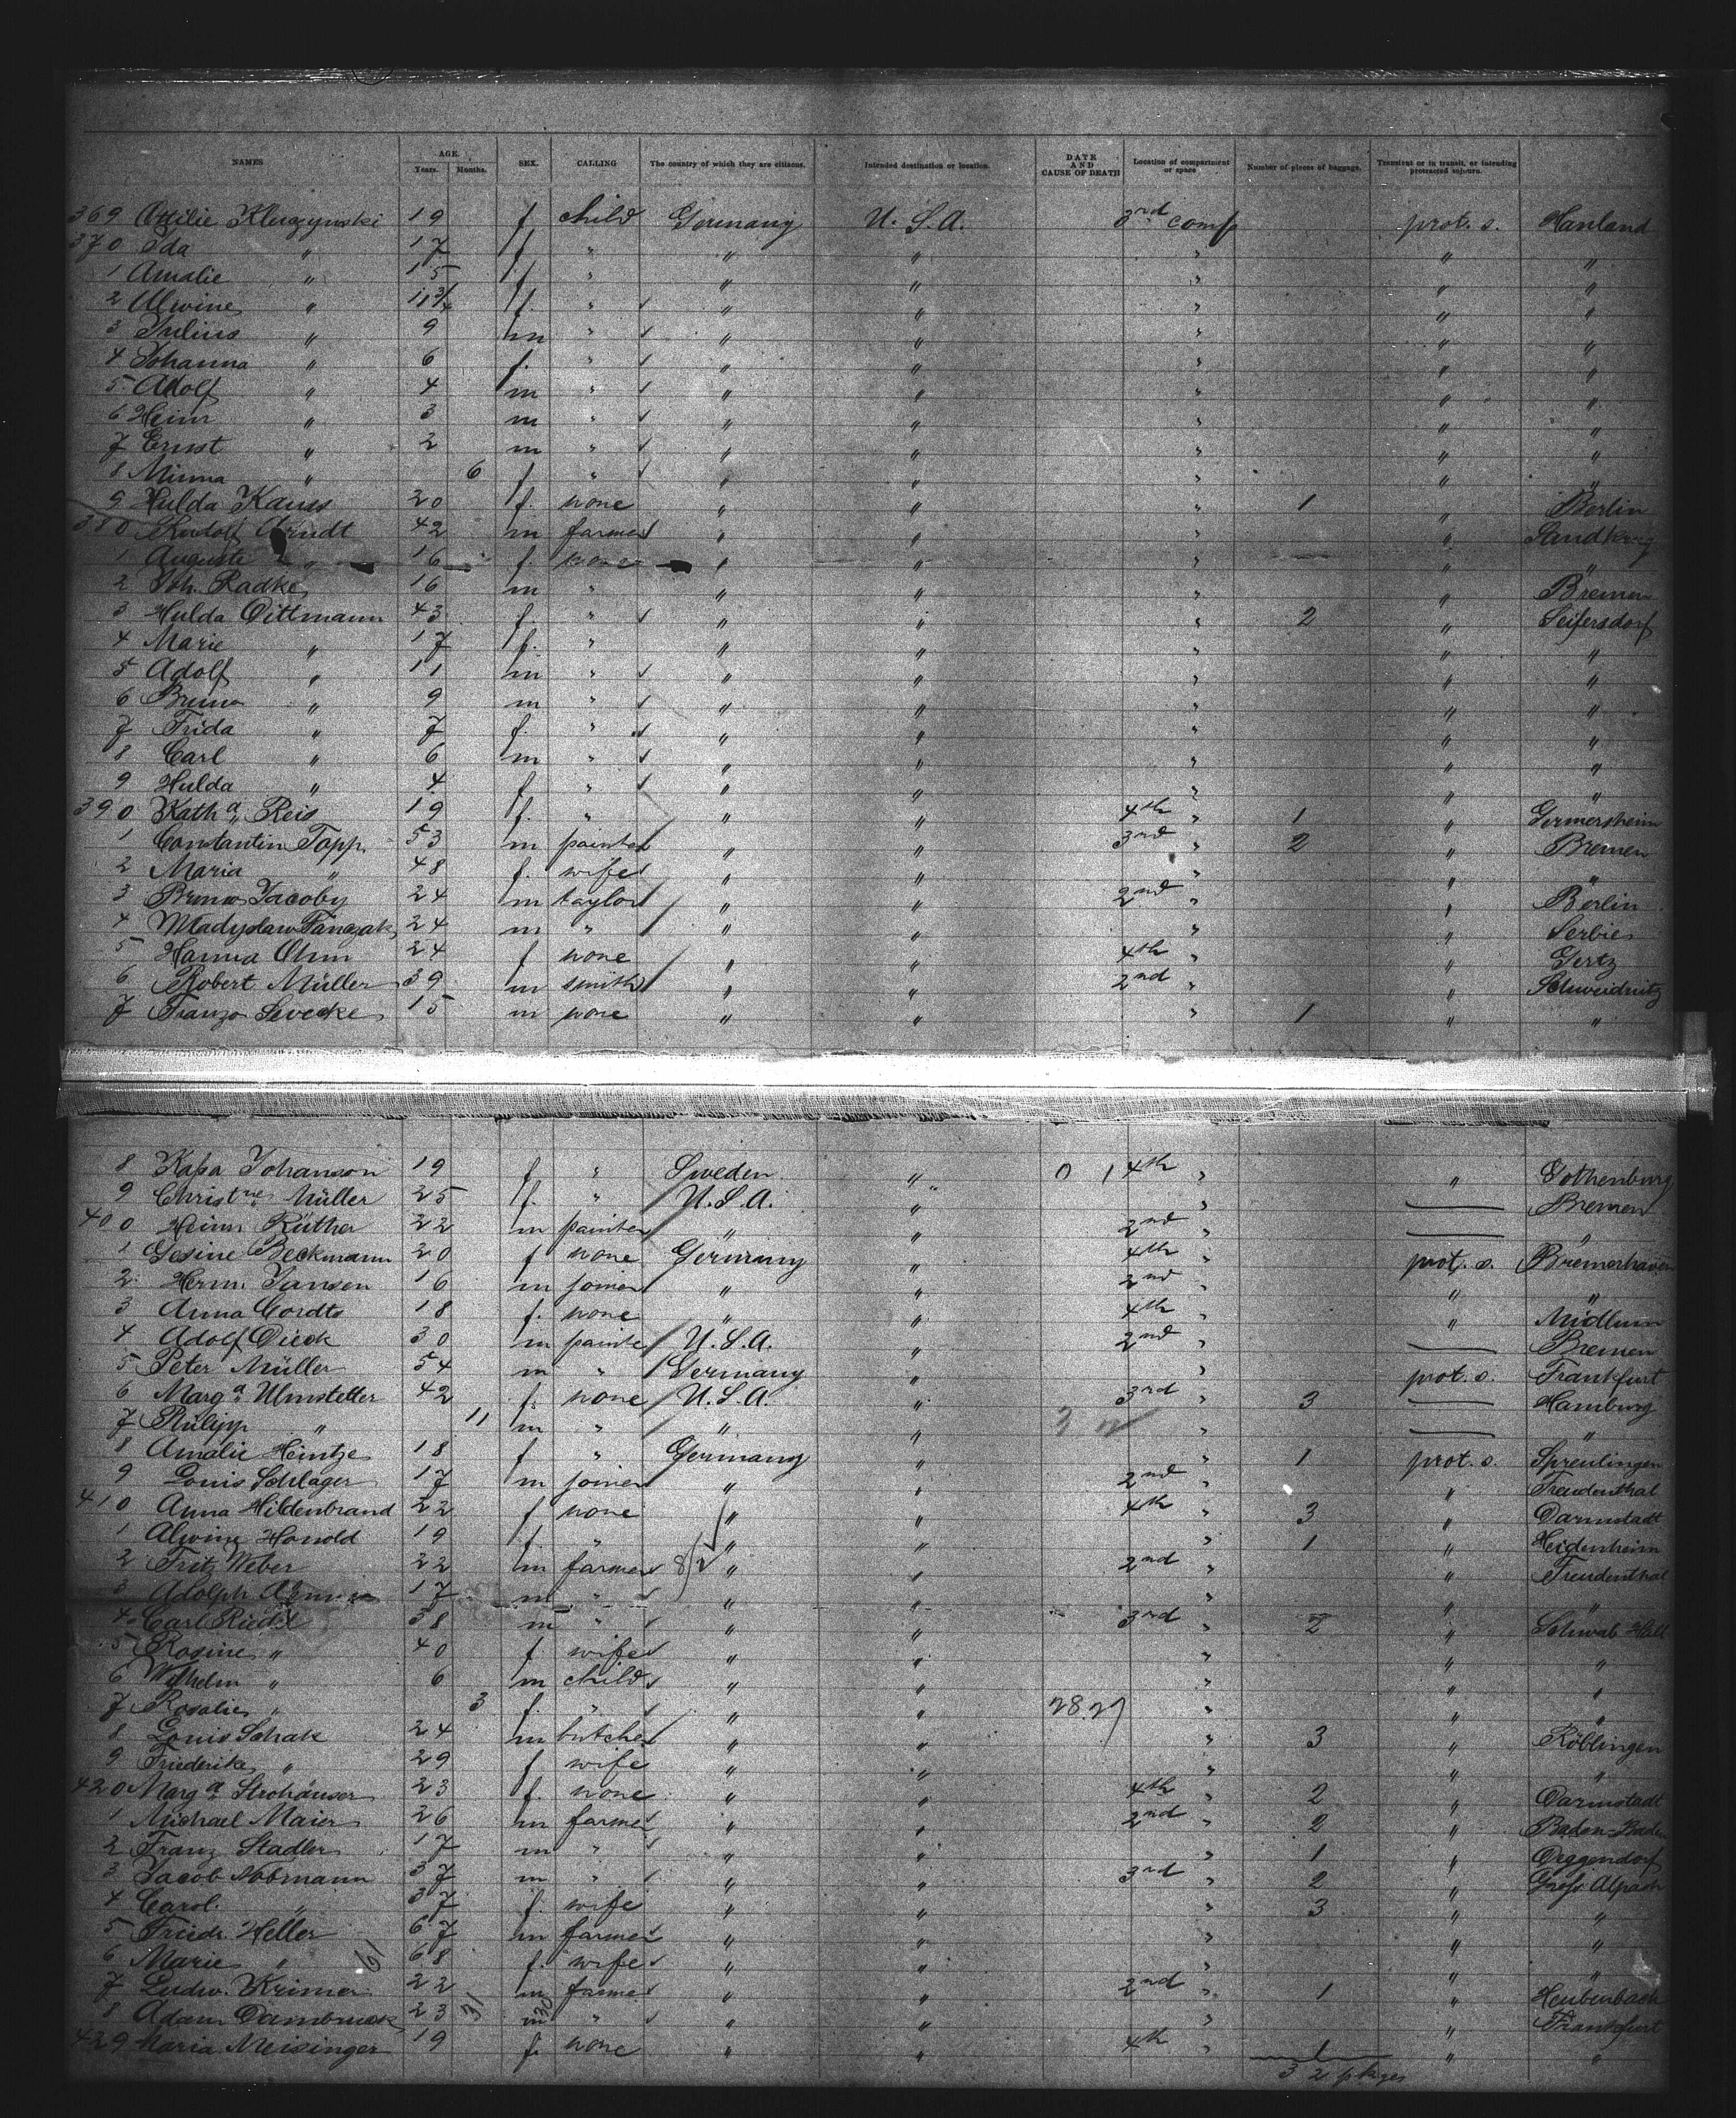 NAMES AGE. Years. Months. SEX. CALLING The country of which they are citizens. Intended destination or location. DATE AND CAUSE OF DEATH Location of compartment or space Number of pieces of baggage. Transient or in transit, or intending protracted sojourn.
369 Ottilie Kluczynski 19 f. child Germany U.S.A. 3rd comp prot. s. Hanland
370 Ida " 17 f. " " " " " "
1 Amalie " 15 f. " " " " " "
2 Alwine " 11 3/4 f. " " " " " "
3 Julius " 9 m " " " " " "
4 Johanna " 6 f. " " " " " "
5 Adolf " 4 m " " " " " "
6 Heinr " 3 m " " " " " "
7 Ernst " 2 m " " " " " "
8 Minna " 6 f " " " " " "
9 Hulda Kauss 20 f. none " " " 1 " Berlin
380 Rudolf Arndt 42 m farmer " " " " Sandberg
1 Auguste " 16 f. none " " " " "
2 Joh. Radke 16 m " " " " " Bremen
3 Hulda Dittmann 43 f. " " " " 2 " Seifersdorf
4 Marie " 17 f. " " " " " "
5 Adolf " 11 m " " " " " "
6 Bruno " 9 m " " " " " "
7 Frida " 7 f. " " " " " "
8 Carl " 6 m " " " " " "
9 Hulda " 4 f " " " " " "
390 Katha Reis 19 f. " " " 4th " 1 " Germersheim
1 Constantin Topp 53 m painter " " 3rd " 2 " Bremen
2 Maria " 48 f. wife " " " " "
3 Bruno Jacoby 24 m taylor " " 2nd " " Berlin
4 24 m " " " " " Serbien
5 Hanna Ohm 24 f none " " 4th " " Gertz
6 Robert Müller 39 m smith " " 2nd " " Schweidnitz
7 Franz Levecke 15 m none " " " 1 " "
8 Johanson 19 f. " Sweden " 0 1 4th " " Gothenburg
9 Christne Müller 25 f. " U.S.A. " " — Bremen
400 Heinr Rüther 22 m painter " " 2nd " — "
1 Gesine Beckmann 20 f. none Germany " 4th " prot. s. Bremerhaven
2 Herm. Jansen 16 m joiner " " 2nd " " "
3 Anna Cordts 18 f. none " " 4th " " Midlum
4 Adolf Dieck 30 m painter U.S.A. " 2nd " — Bremen
5 Peter Müller 54 m " Germany " " prot. s. Frankfurt
6 Marga Ulmstetter 42 f. none U.S.A. " 3rd " 3 — Hamburg
7 Philipp " 11 m " " " " — "
8 Amalie Heintze 18 f " Germany " " 1 prot. s. Sprenlingen
9 Louis Schlager 17 m joiner " " 2nd " " Freudenthal
410 Anna Hildenbrand 22 f none " " 4th " 3 " Darmstadt
1 Alwine Honold 19 f. " " " " 1 " Heidenheim
2 Fritz Weber 22 m farmer " " 2nd " " Freudenthal
3 Adolph 17 m " " " " " "
4 Carl Riedel 38 m " " " 3rd " 2 " Schwab Hall
5 Rosine " 40 f wife " " " " "
6 Wilhelm " 6 m child " " " " "
7 Rosalie " 3 f. " " " 28.2 " " "
8 Louis Schak 24 m butcher " " " 3 " Röblingen
9 Friederike " 29 f wife " " " " "
420 Marga Strohäuser 23 f. none " " 4th " 2 " Darmstadt
1 Michael Maier 26 m farmer " " 2nd " 2 " Baden-Baden
2 Franz Stadler 17 m " " " " 1 " Oeggendorf
3 Jacob Nobmann 37 m " " " 3rd " 2 " Gross Alpach
4 Carol. " 37 f. wife " " " 3 " "
5 Friedr. Heller 67 m farmer " " " " "
6 Marie " 68 f. wife " " " " "
7 Ludw. Krimer 22 m farmer " " 2nd " 1 " Heubenbach
8 Adam 23 m " " " " " Frankfurt
429 Maria Meisinger 19 f. none " " 4th " 1 " "
32 pkges